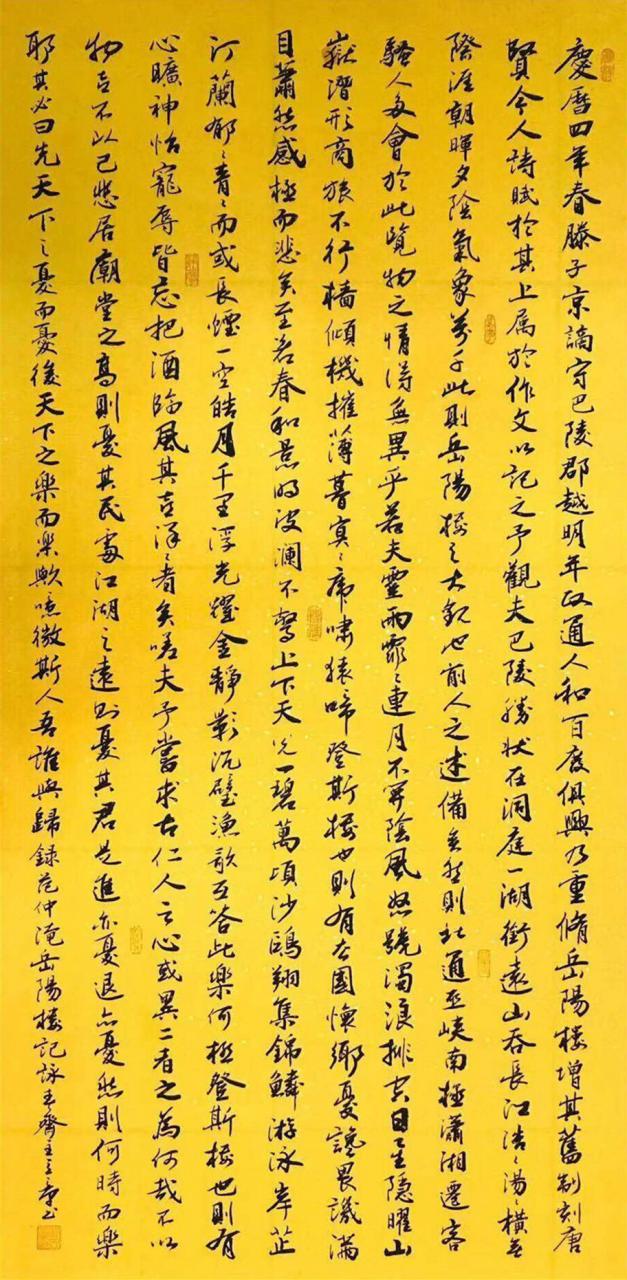 慶曆四年春滕子京謫守巴陵郡越明年政通人和百廢俱興乃重脩岳陽樓增其舊制刻唐
賢今人詩賦於其上属於作文以記之予觀夫巴陵勝狀在洞庭一湖銜遠山吞長江浩〻湯〻橫無
際涯朝暉夕陰氣象萬千此則岳陽樓之大觀也前人之述備矣然則北通巫峽南極瀟湘遷客
騷人多會於此覽物之情得無異乎若夫霪雨霏〻連月不開陰風怒號濁浪排空日星隱曜山
嶽潛形商旅不行檣傾檝摧薄暮冥〻虎嘯猿啼登斯樓也則有去國懷鄉憂讒畏譏滿
目蕭然感極而悲矣至若春和景明波瀾不驚上下天光一碧萬頃沙鷗翔集錦鱗游泳岸芷
汀蘭郁〻青〻而或長煙一空皓月千里浮光耀金靜影沉璧漁歌互答此樂何極登斯樓也則有
心曠神怡寵辱皆忘把酒臨風其喜洋〻者矣嗟夫予嘗求古仁人之心或異二者之為何哉不以
物喜不以己悲居廟堂之高則憂其民處江湖之遠則憂其君是進亦憂退亦憂然則何時而樂
耶其必曰先天下之憂而憂後天下之樂而樂歟噫微斯人吾誰與歸錄范仲淹岳陽樓記詠春齋主